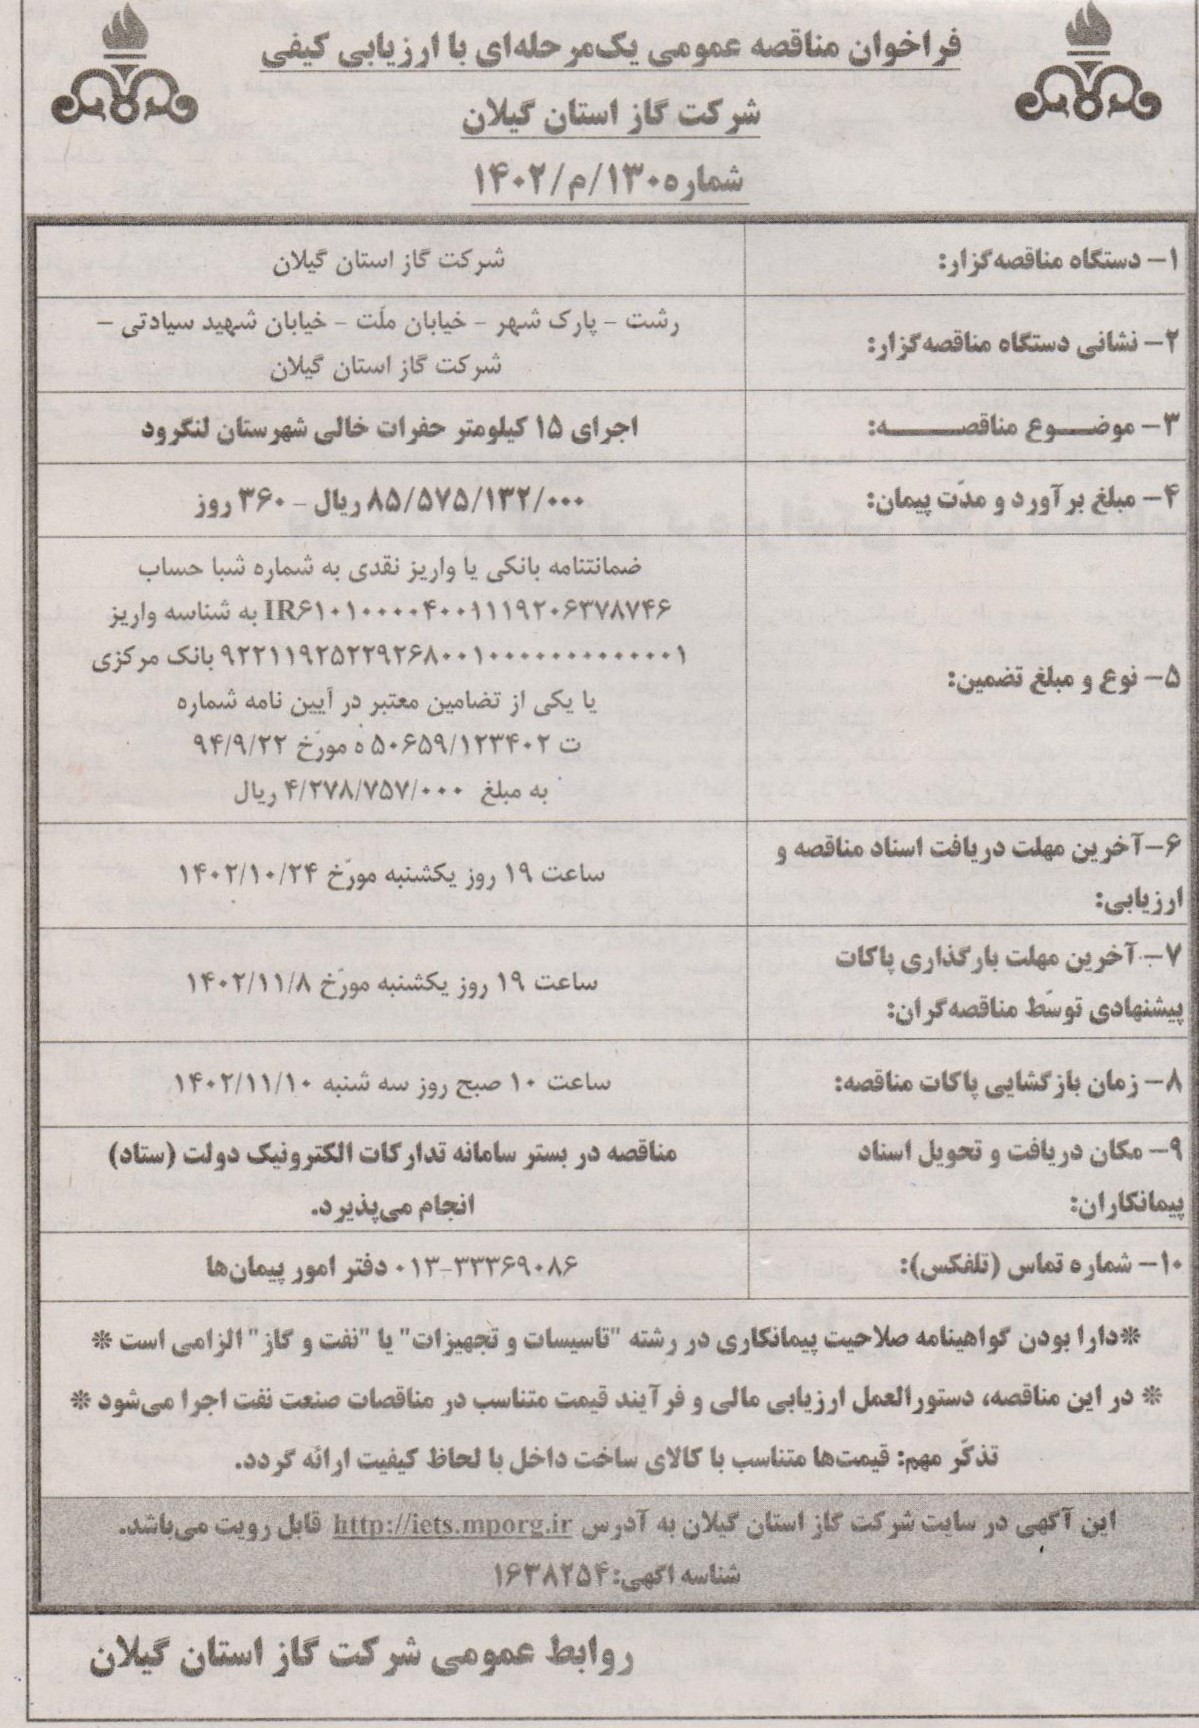 فراخوان مناقصه عمومی یک‌مرحله‌ای با ارزیابی کیفی
شرکت گاز استان گیلان
شماره ۱۳۰/م/۱۴۰۲
۱- دستگاه مناقصه‌گزار:
شرکت گاز استان گیلان
۲- نشانی دستگاه مناقصه‌گزار:
رشت - پارک شهر - خیابان ملّت - خیابان شهید سیادتی -
شرکت گاز استان گیلان
۳- موضـــوع مناقصـــــه:
اجرای ۱۵ کیلومتر حفرات خالی شهرستان لنگرود
۴- مبلغ برآورد و مدّت پیمان:
۸۵/۵۷۵/۱۳۲/۰۰۰ ریال - ۳۶۰ روز
۵- نوع و مبلغ تضمین:
ضمانتنامه بانکی یا واریز نقدی به شماره شبا حساب
IR۶۱۰۱۰۰۰۰۴۰۰۱۱۱۹۲۰۶۳۷۸۷۴۶ به شناسه واریز
۹۲۲۱۱۹۲۵۲۲۹۲۶۸۰۰۱۰۰۰۰۰۰۰۰۰۰۰۰۱ بانک مرکزی
یا یکی از تضامین معتبر در آیین نامه شماره
۱۲۳۴۰۲/ت ۵۰۶۵۹ ه مورّخ ۹۴/۹/۲۲
به مبلغ ۴/۲۷۸/۷۵۷/۰۰۰ ریال
۶-آخرین مهلت دریافت اسناد مناقصه و
ارزیابی:
ساعت ۱۹ روز یکشنبه مورّخ ۱۴۰۲/۱۰/۲۴
۷- آخرین مهلت بارگذاری پاکات
پیشنهادی توسّط مناقصه‌گران:
ساعت ۱۹ روز یکشنبه مورّخ ۱۴۰۲/۱۱/۸
۸- زمان بازگشایی پاکات مناقصه:
ساعت ۱۰ صبح روز سه شنبه ۱۴۰۲/۱۱/۱۰
۹- مکان دریافت و تحویل اسناد
پیمانکاران:
مناقصه در بستر سامانه تدارکات الکترونیک دولت (ستاد)
انجام می‌پذیرد.
۱۰- شماره تماس (تلفکس):
۰۱۳-۳۳۳۶۹۰۸۶ دفتر امور پیمان‌ها
*دارا بودن گواهینامه صلاحیت پیمانکاری در رشته "تاسیسات و تجهیزات" یا "نفت و گاز" الزامی است *
* در این مناقصه، دستورالعمل ارزیابی مالی و فرآیند قیمت متناسب در مناقصات صنعت نفت اجرا می‌شود *
تذکّر مهم: قیمت‌ها متناسب با کالای ساخت داخل با لحاظ کیفیت ارائه گردد.
این آگهی در سایت شرکت گاز استان گیلان به آدرس http://iets.mporg.ir قابل رویت می‌باشد.
شناسه اگهی:۱۶۳۸۲۵۴
روابط عمومی شرکت گاز استان گیلان